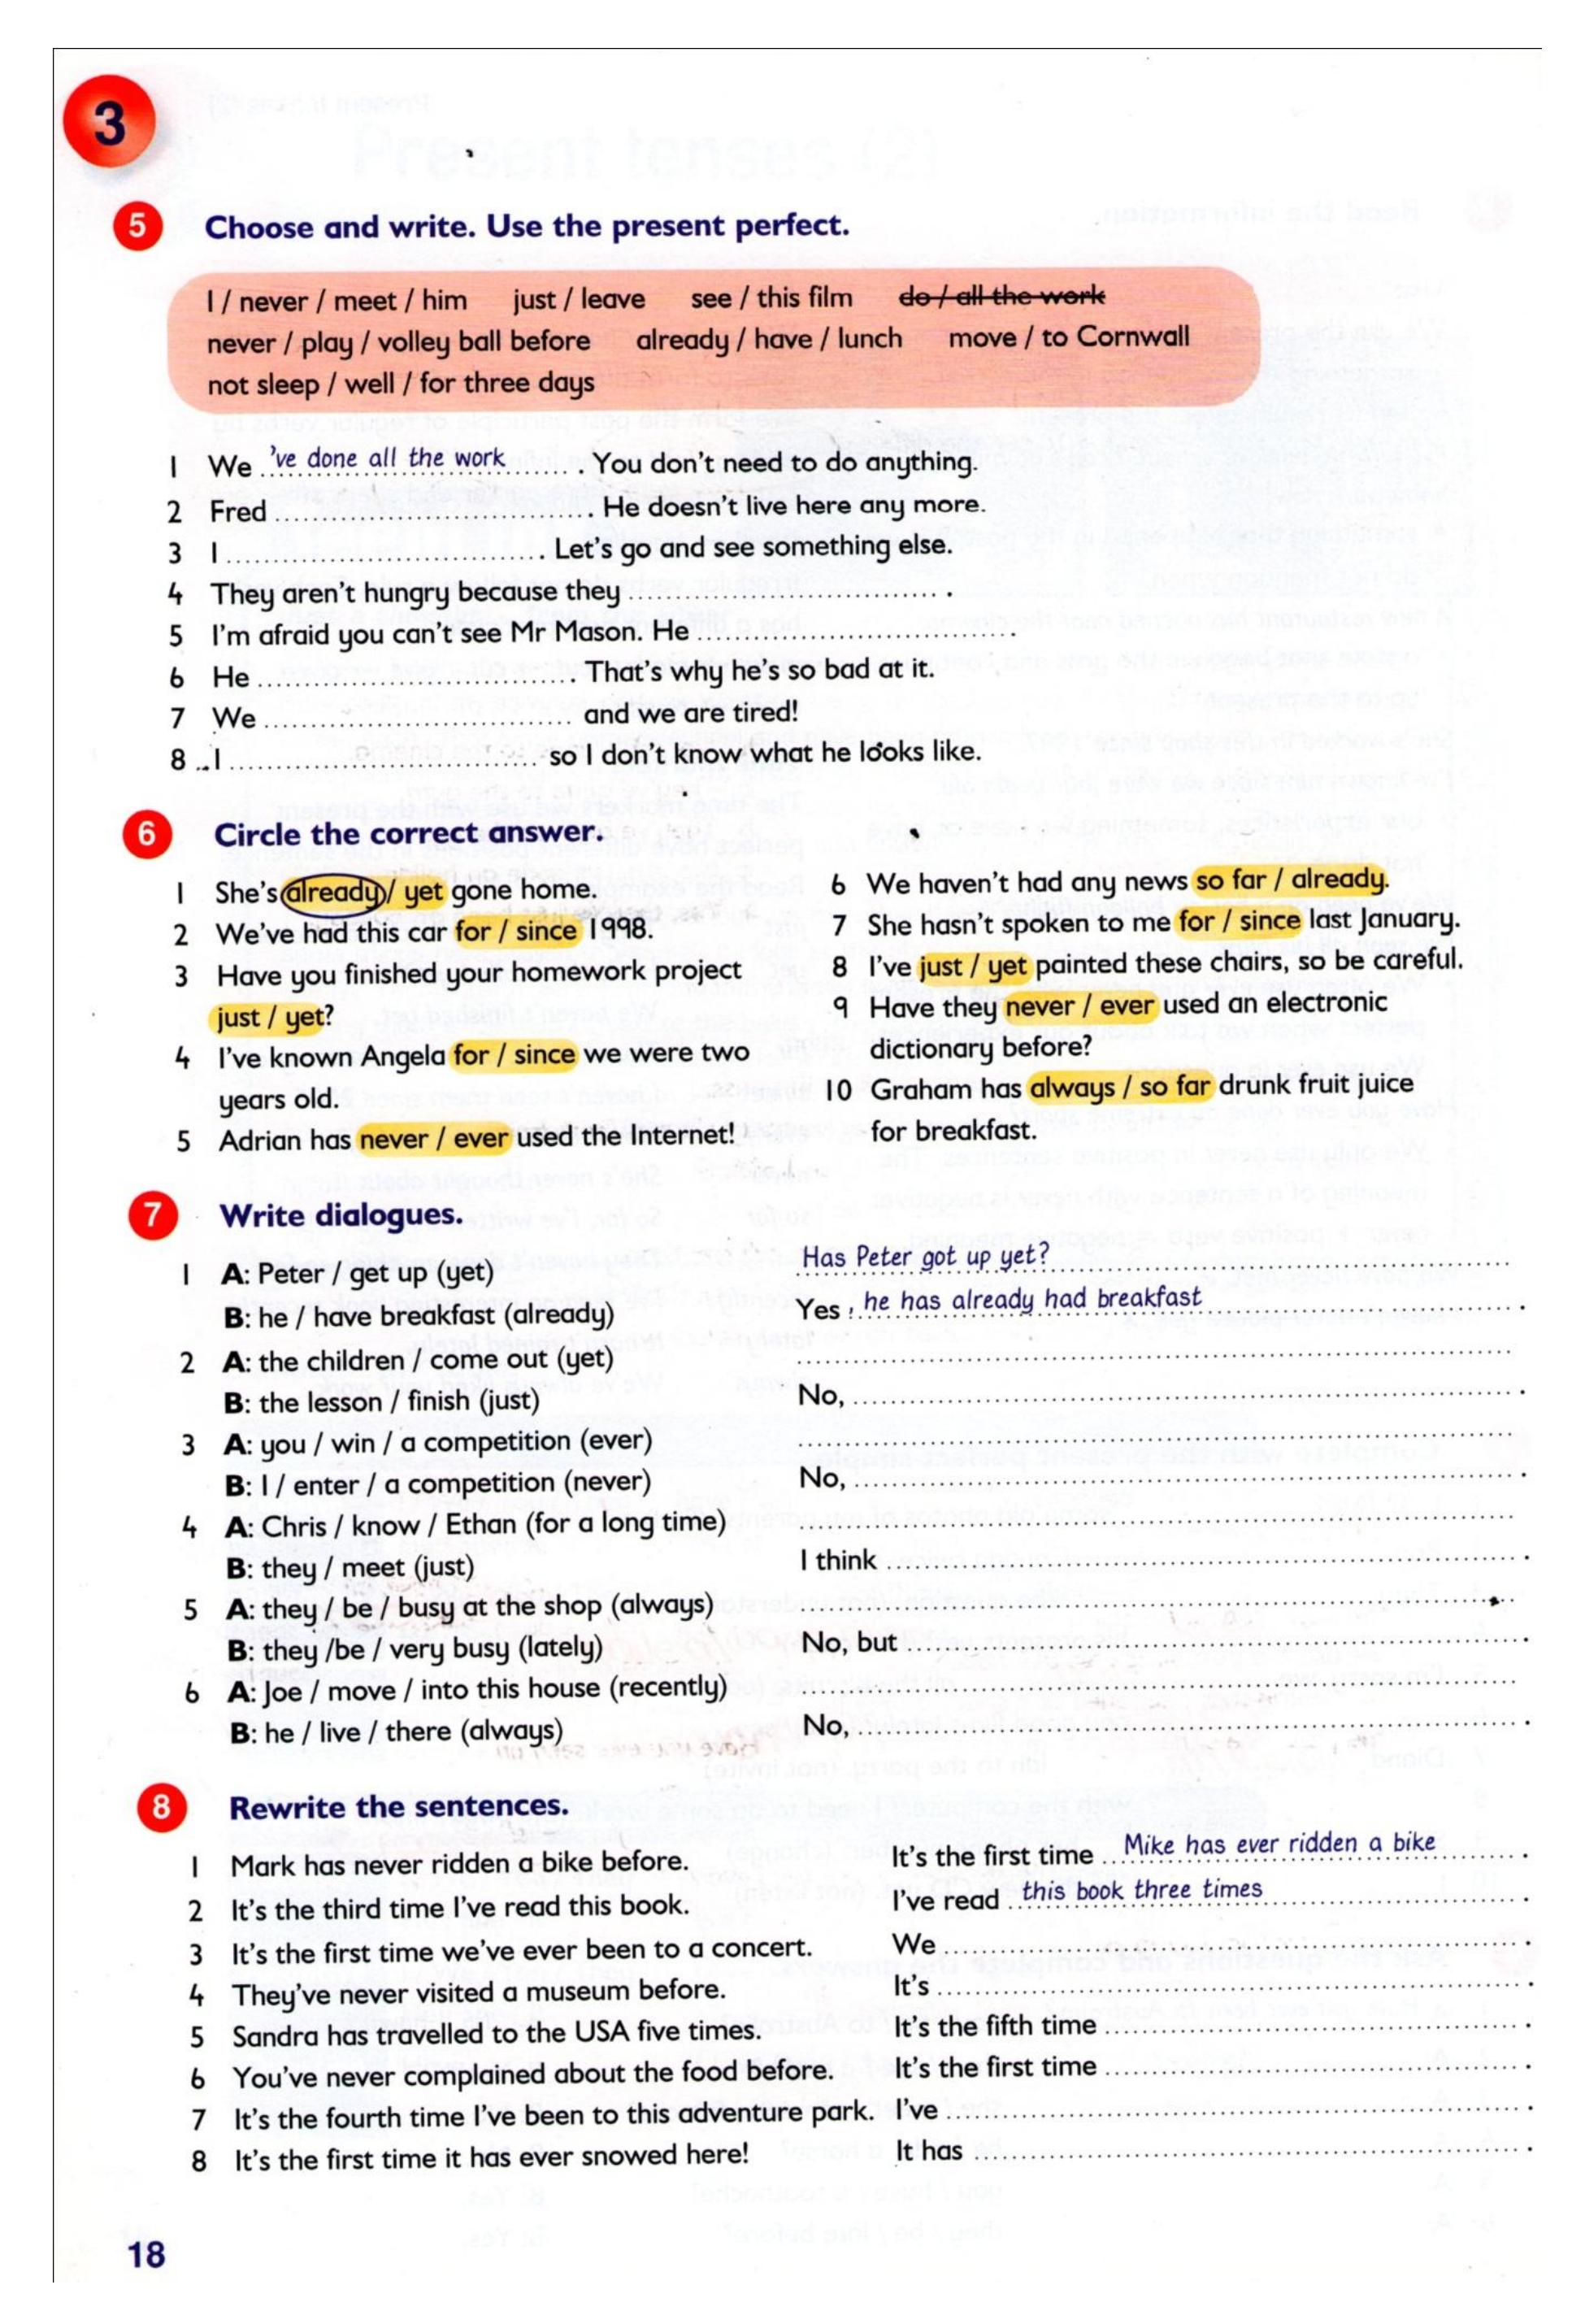 3
5 Choose and write. Use the present perfect.
I / never / meet / him just / leave see / this film do / all the work
never / play / volley ball before already / have / lunch move / to Cornwall
not sleep / well / for three days
1 We 've done all the work. You don't need to do anything.
2 Fred .............................. He doesn't live here any more.
3 I .............................. Let's go and see something else.
4 They aren't hungry because they ..............................
5 I'm afraid you can't see Mr Mason. He ..............................
6 He .............................. That's why he's so bad at it.
7 We .............................. and we are tired!
8 I .............................. so I don't know what he looks like.
6 Circle the correct answer.
1 She's already / yet gone home.
2 We've had this car for / since 1998.
3 Have you finished your homework project
just / yet?
4 I've known Angela for / since we were two
years old.
5 Adrian has never / ever used the Internet!
6 We haven't had any news so far / already.
7 She hasn't spoken to me for / since last January.
8 I've just / yet painted these chairs, so be careful.
9 Have they never / ever used an electronic
dictionary before?
10 Graham has always / so far drunk fruit juice
for breakfast.
7 Write dialogues.
1 A: Peter / get up (yet) Has Peter got up yet?
B: he / have breakfast (already) Yes, he has already had breakfast.
2 A: the children / come out (yet) ..............................
B: the lesson / finish (just) No, ..............................
3 A: you / win / a competition (ever) ..............................
B: I / enter / a competition (never) No, ..............................
4 A: Chris / know / Ethan (for a long time) ..............................
B: they / meet (just) I think ..............................
5 A: they / be / busy at the shop (always) ..............................
B: they /be / very busy (lately) No, but ..............................
6 A: Joe / move / into this house (recently) ..............................
B: he / live / there (always) No, ..............................
8 Rewrite the sentences.
1 Mark has never ridden a bike before. It's the first time Mike has ever ridden a bike.
2 It's the third time I've read this book. I've read this book three times.
3 It's the first time we've ever been to a concert. We ..............................
4 They've never visited a museum before. It's ..............................
5 Sandra has travelled to the USA five times. It's the fifth time ..............................
6 You've never complained about the food before. It's the first time ..............................
7 It's the fourth time I've been to this adventure park. I've ..............................
8 It's the first time it has ever snowed here! It has ..............................
18